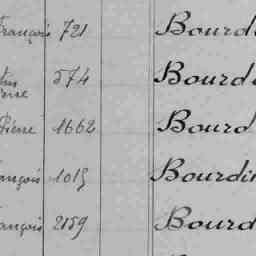 François 721 Bourdi
574 Bourdi
Pierre 1662 Bourd
ançois 1015 Bourdin
ançois 2159 Bourd